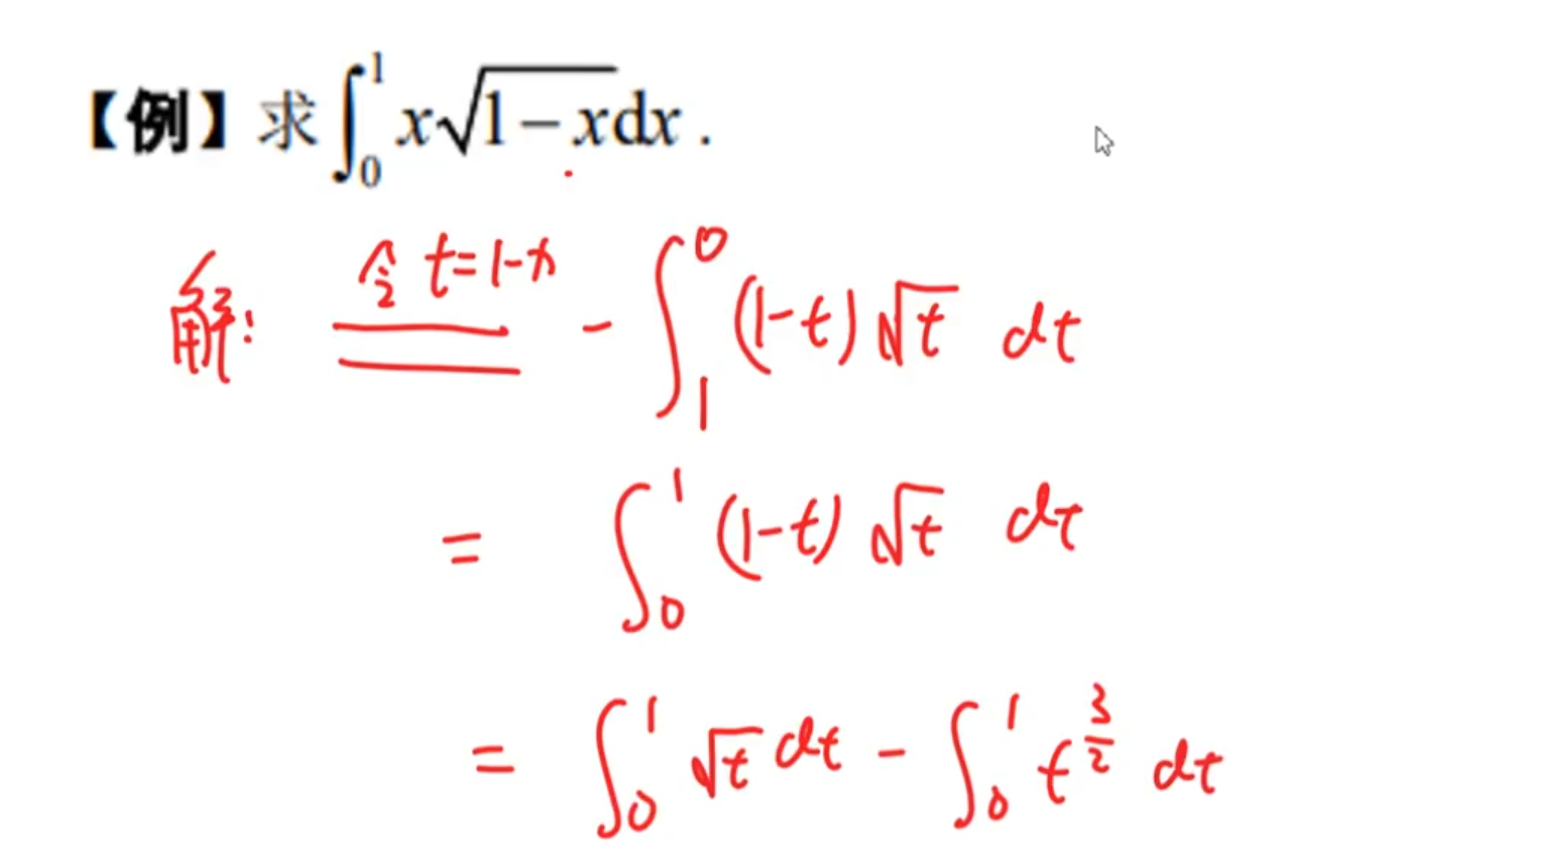 【例】求∫₀¹ x√(1−x)dx .
解: 令 t=1-x == -∫₁⁰ (1-t)√t dt
= ∫₀¹ (1-t)√t dt
= ∫₀¹ √t dt - ∫₀¹ t^(3/2) dt